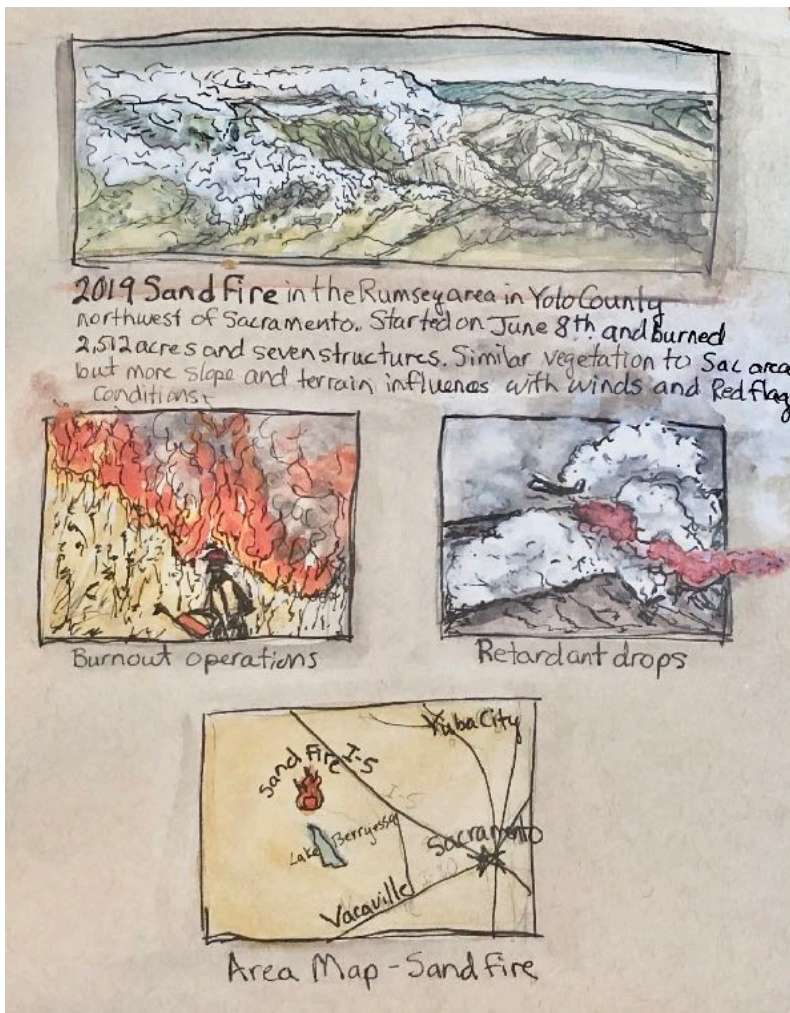 2019 Sand Fire in the Rumsey area in Yolo County
northwest of Sacramento. Started on June 8th and burned
2,512 acres and seven structures. Similar vegetation to Sac area
but more slope and terrain influences with winds and Red flag
Conditions.
Burnout operations
Retardant drops
Yuba City
Sand Fire
I-5
I-5
Lake Berryessa
Sacramento
I-80
Vacaville
Area Map - Sand Fire